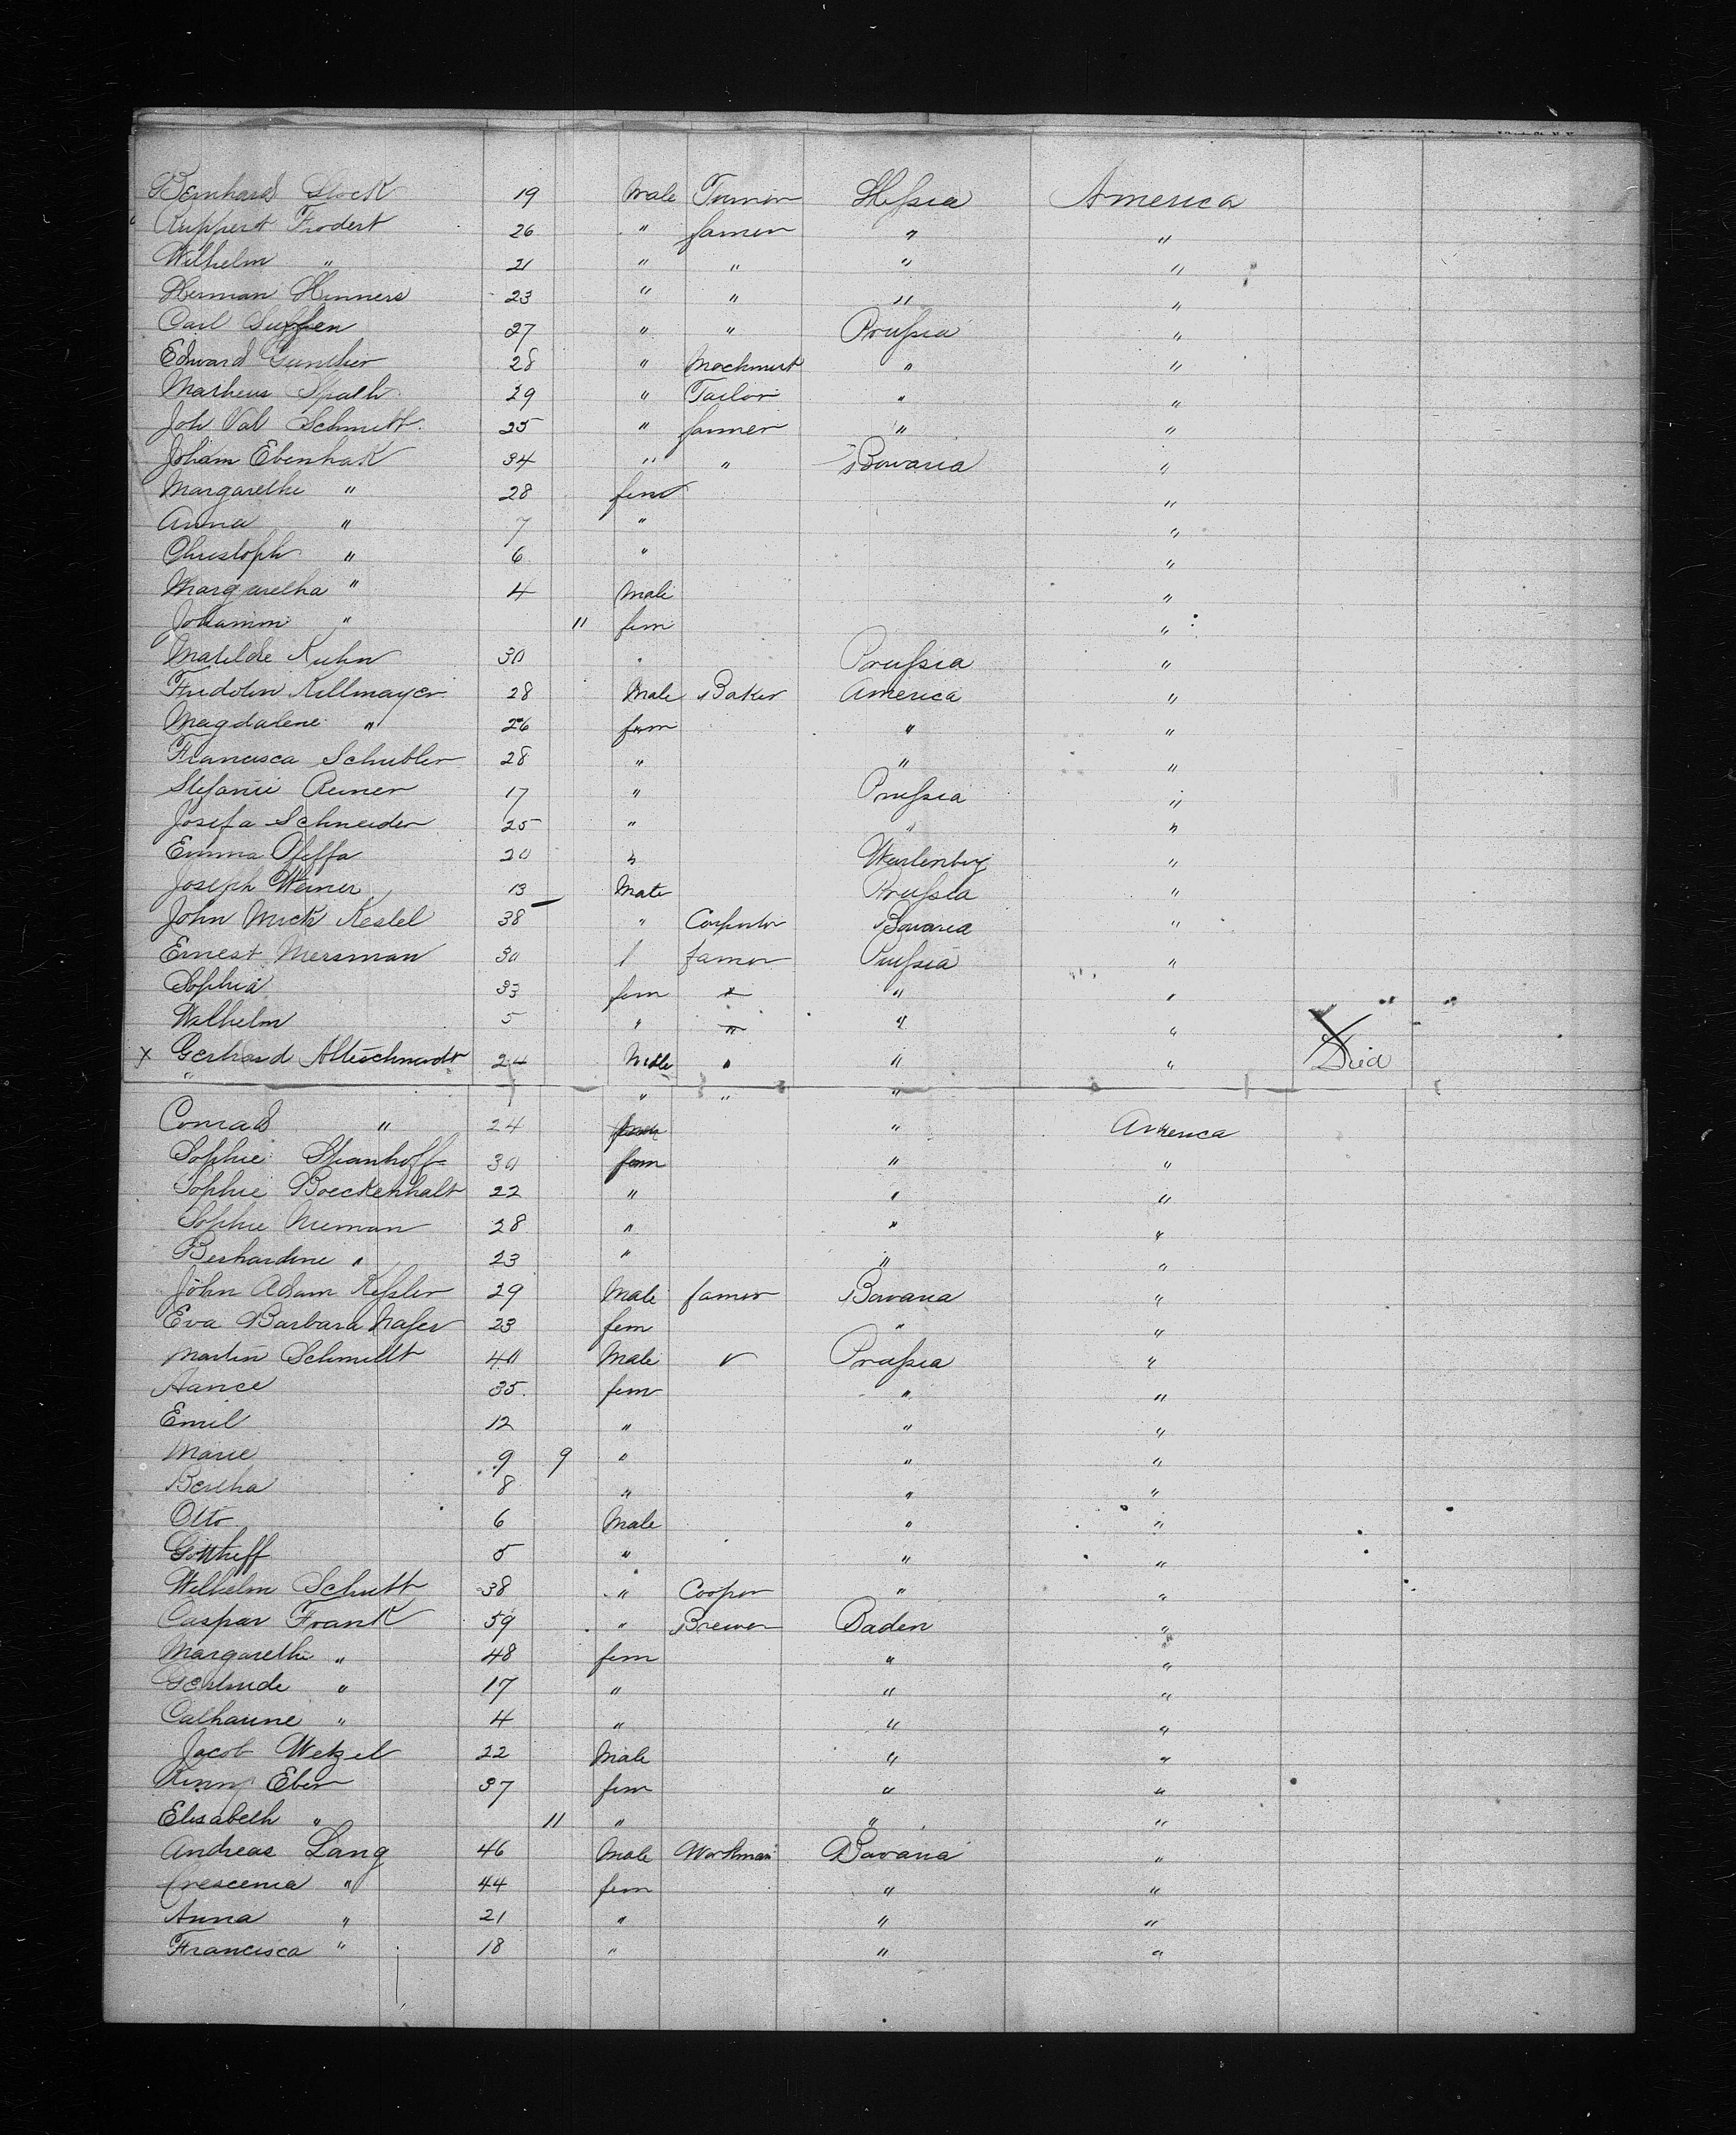 Bernhard Stock 19 Male Turner Hessia America
Ruppert Frodert 26 " farmer " "
Wilhelm " 21 " " " "
Herman Hinners 23 " " " "
Carl Suffen 27 " " Prussia "
Edward Gunther 28 " Mechanist " "
Matheus Spath 29 " Tailor " "
Joh Val Schmitt 25 " farmer " "
Joham Ebenhak 34 " " Bavaria "
Margarethe " 28 fem "
Anna " 7 " "
Christoph " 6 " "
Margaretha " 4 Male "
Johamm " 11 fem "
Matilde Kuhn 30 " Prussia "
Fridolin Killmayer 28 Male Baker America "
Magdalene " 26 fem " "
Francisca Schubler 28 " " "
Stefanie Reiner 17 " Prussia "
Josefa Schneider 25 " " "
Emma Pfeffa 20 " Wurtenberg "
Joseph Werner 13 Male Prussia "
John Mick Kestel 38 " Carpenter Bavaria "
Ernest Mersman 30 farmer Prussia "
Sophia 33 fem " "
Wilhelm 5 " " " "
x Gerhard Alteschmidt 24 Male " " " Died
" " " "
Conrad " 24 " America
Sophie Spanhoff 30 fem " "
Sophie Boeckenhalt 22 " " "
Sophie Nieman 28 " " "
Berhardine " 23 " " "
John Adam Kessler 29 Male farmer Bavaria "
Eva Barbara Naser 23 fem " "
Martin Schmidt 40 Male Prussia "
35 fem " "
Emil 12 " " "
Marie 9 9 " " "
Bertha 8 " " "
Otto 6 Male " "
5 " " "
Wilhelm Schutt 38 " Cooper " "
Caspar Frank 59 " Brewer Baden "
Margarethe " 48 fem " "
Gertrude " 17 " " "
Catharine " 4 " " "
Jacob Wetzel 22 Male " "
Eber 37 fem " "
Elisabeth " 11 " " "
Andreas Lang 46 Male Workman Bavaria "
Crescenia " 44 fem " "
Anna " 21 " " "
Francisca " 18 " " "